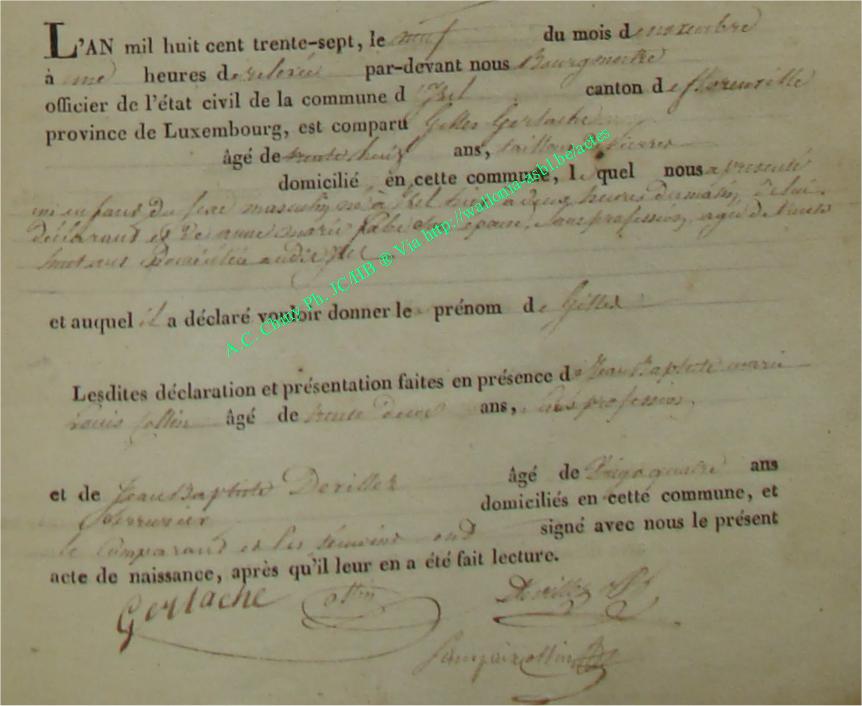 L'AN mil huit cent trente-sept, le neuf du mois de novembre
à une heures de relevée par-devant nous Bourgmestre
officier de l'état civil de la commune d'Izel canton de florenville
province de Luxembourg, est comparu Gilles Gerlache
âgé de trente huit ans, tailleur de pierres
domicilié en cette commune, lequel nous a présenté
un enfant du sexe masculin, né à Izel hier à deux heures du matin, de lui
déclarant et de anne marie son épouse, sans profession, agée de trente
ans domiciliée audit Izel
et auquel il a déclaré vouloir donner le prénom de Gilles
Lesdites déclaration et présentation faites en présence de Jean Baptiste marie
Louis Collin âgé de trente deux ans, sans profession,
et de Jean Baptiste Devillez âgé de vingt quatre ans
Serrurier domiciliés en cette commune, et
le Comparant et les témoins ont signé avec nous le présent
acte de naissance, après qu'il leur en a été fait lecture.
Gerlache Collin Devillez
A.C. Chiny Ph. JC/HB ® Via http://wallonia-asbl.be/actes